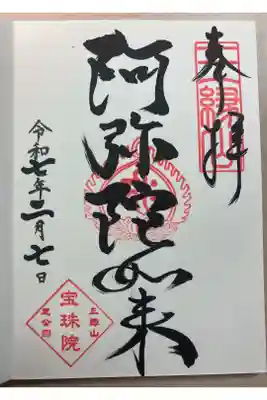 奉拝
阿弥陀如来
令和七年二月七日
三縁山
宝珠院
芝公園